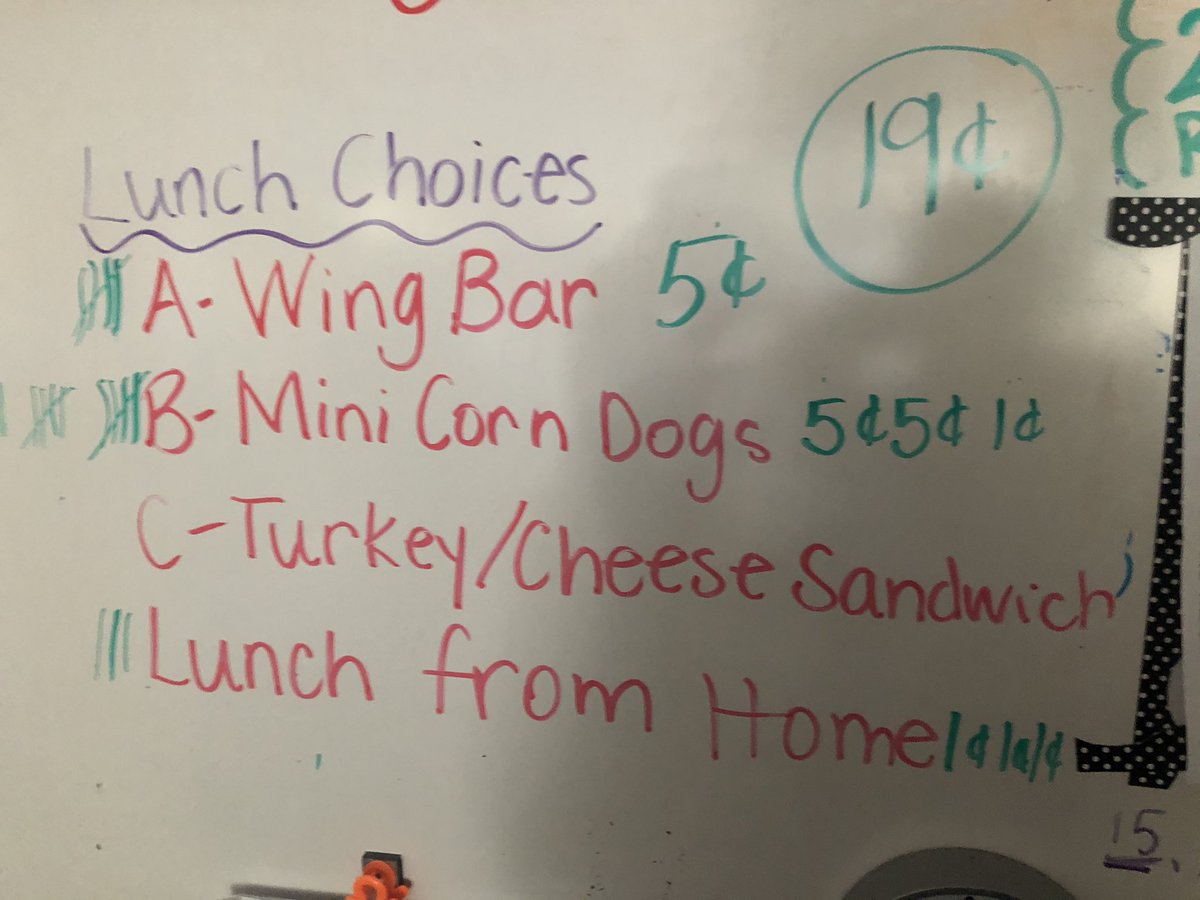 19¢
Lunch Choices
A- Wing Bar 5¢
B- Mini Corn Dogs 5¢5¢ 1¢
C-Turkey/Cheese Sandwich
Lunch from Home 1¢1¢1¢
15